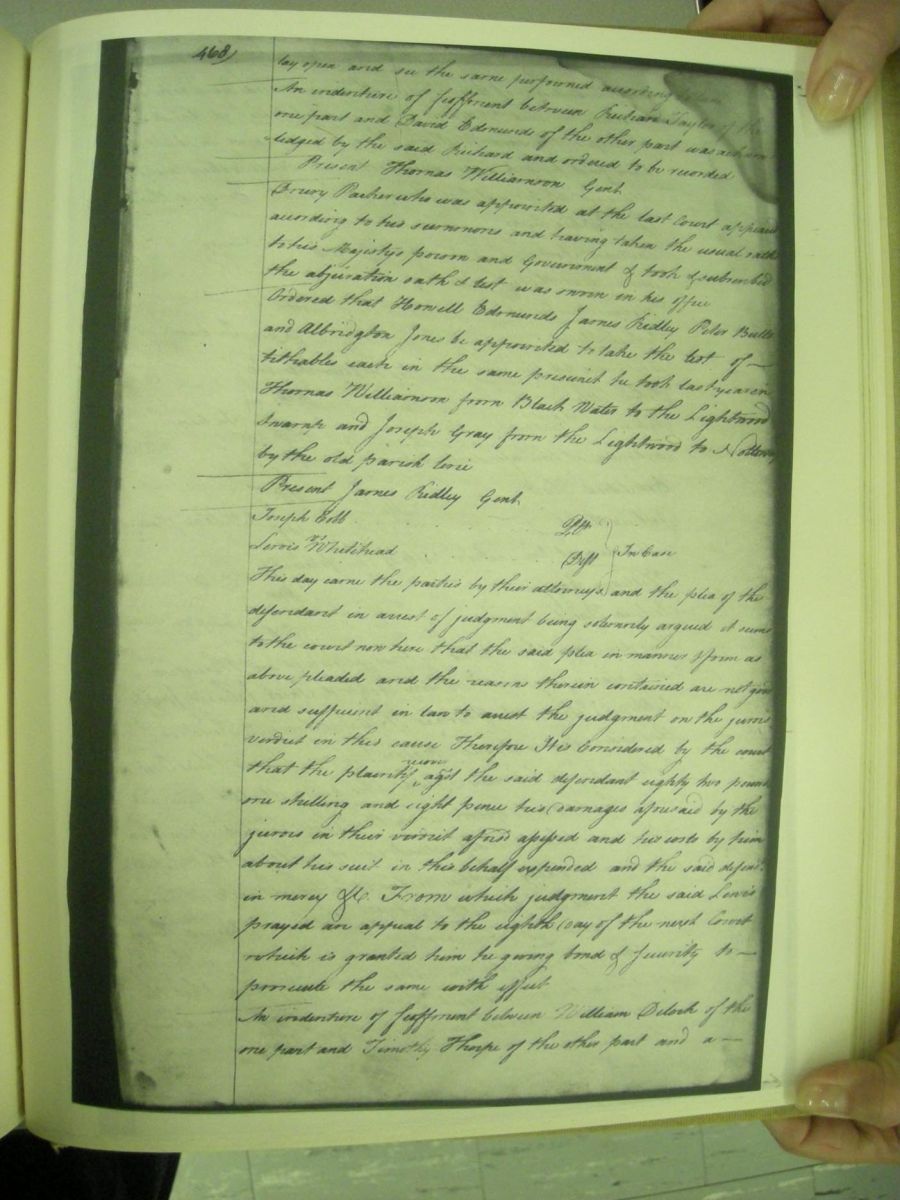 468)
lay open and see the same performed according
An indenture of feoffment between Richard Taylor of the
one part and David Edmunds of the other part was acknow
ledged by the said Richard and ordered to be recorded
Present Thomas Williamson Gent.
Drury Parker who was appointed at the last Court appeared
according to his summons and having taken the usual oath
to his Majestys person and Government & took & subscribed
the abjuration oath & test was sworn in his office
Ordered that Howell Edmunds James Ridley Peter Butts
and Albridgton Jones be appointed to take the list of —
tithables each in the same precinct he took last year in
Thomas Williamson from Black Water to the Lightwood
Swamp and Joseph Gray from the Lightwood to Nottoway
by the old parish line
Present James Ridley Gent.
Joseph Cobb Plt
vs
Lewis Whitehead Deft } In Case
This day came the parties by their attorneys and the plea of the
defendant in arrest of judgment being solemnly argued it seems
to the court now here that the said plea in manner & form as
above pleaded and the reasons therein contained are not good
and sufficient in law to arrest the judgment on the jurors
verdict in this cause Therefore It is Considered by the court
that the plaintif recover agst the said defendant eighty two pounds
one shilling and eight pence his damages aforesaid by the
jurors in their verdict aforsd assessed and his costs by him
about his suit in this behalf expended and the said defendt
in mercy &c. From which judgment the said Lewis
prayed an appeal to the eighth day of the next Court
which is granted him he giving bond & security to —
prosecute the same with effect
An indenture of feoffment between William Deloch of the
one part and Timothy Thorpe of the other part and a —